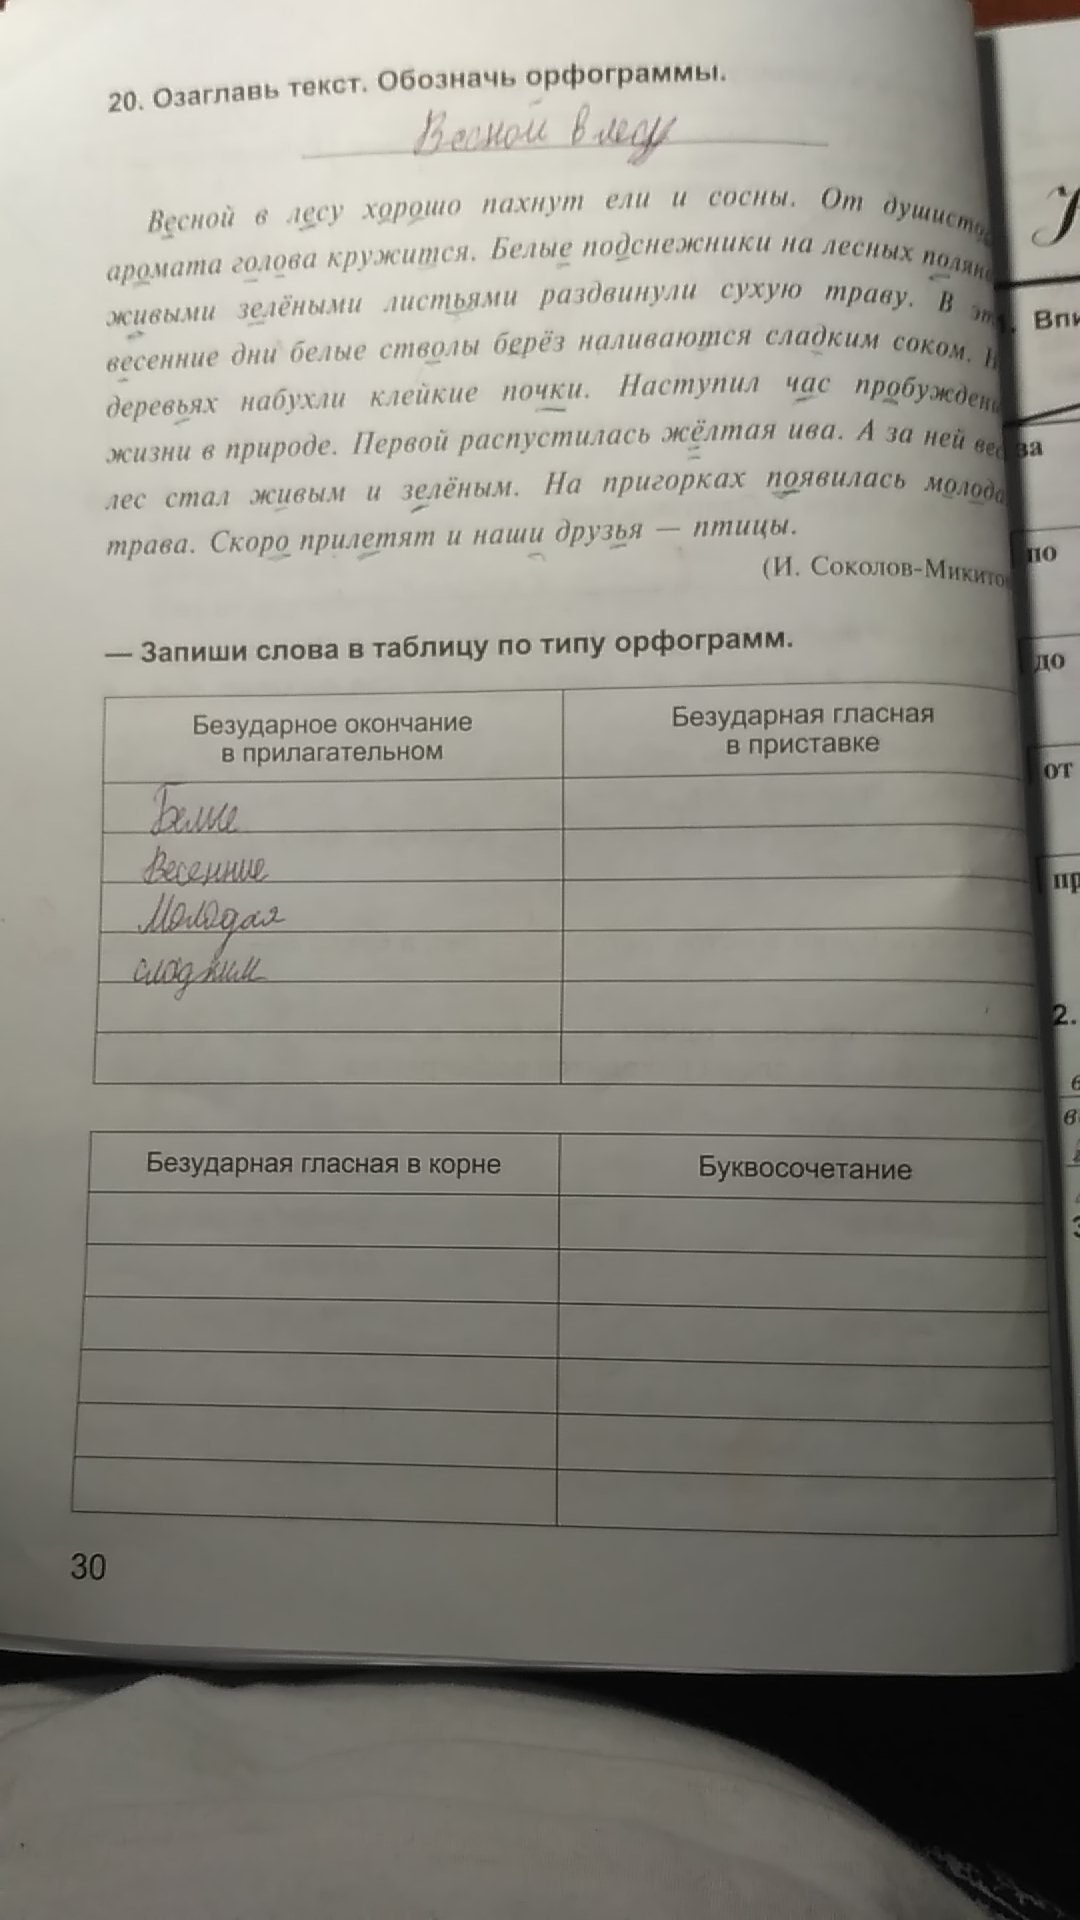 20. Озаглавь текст. Обозначь орфограммы.
Весной в лесу
Весной в лесу хорошо пахнут ели и сосны. От
аромата голова кружится. Белые подснежники на лесных
живыми зелёными листьями раздвинули сухую траву. В
весенние дни белые стволы берёз наливаются сладким соком.
деревьях набухли клейкие почки. Наступил час
жизни в природе. Первой распустилась жёлтая ива. А за ней
лес стал живым и зелёным. На пригорках появилась
трава. Скоро прилетят и наши друзья — птицы.
(И. Соколов-Микито
— Запиши слова в таблицу по типу орфограмм.
Безударное окончание
в прилагательном
Безударная гласная
в приставке
Белые
Весенние
Молодая
сладким
Безударная гласная в корне
Буквосочетание
30
Впи
за
по
до
от
пр
2.